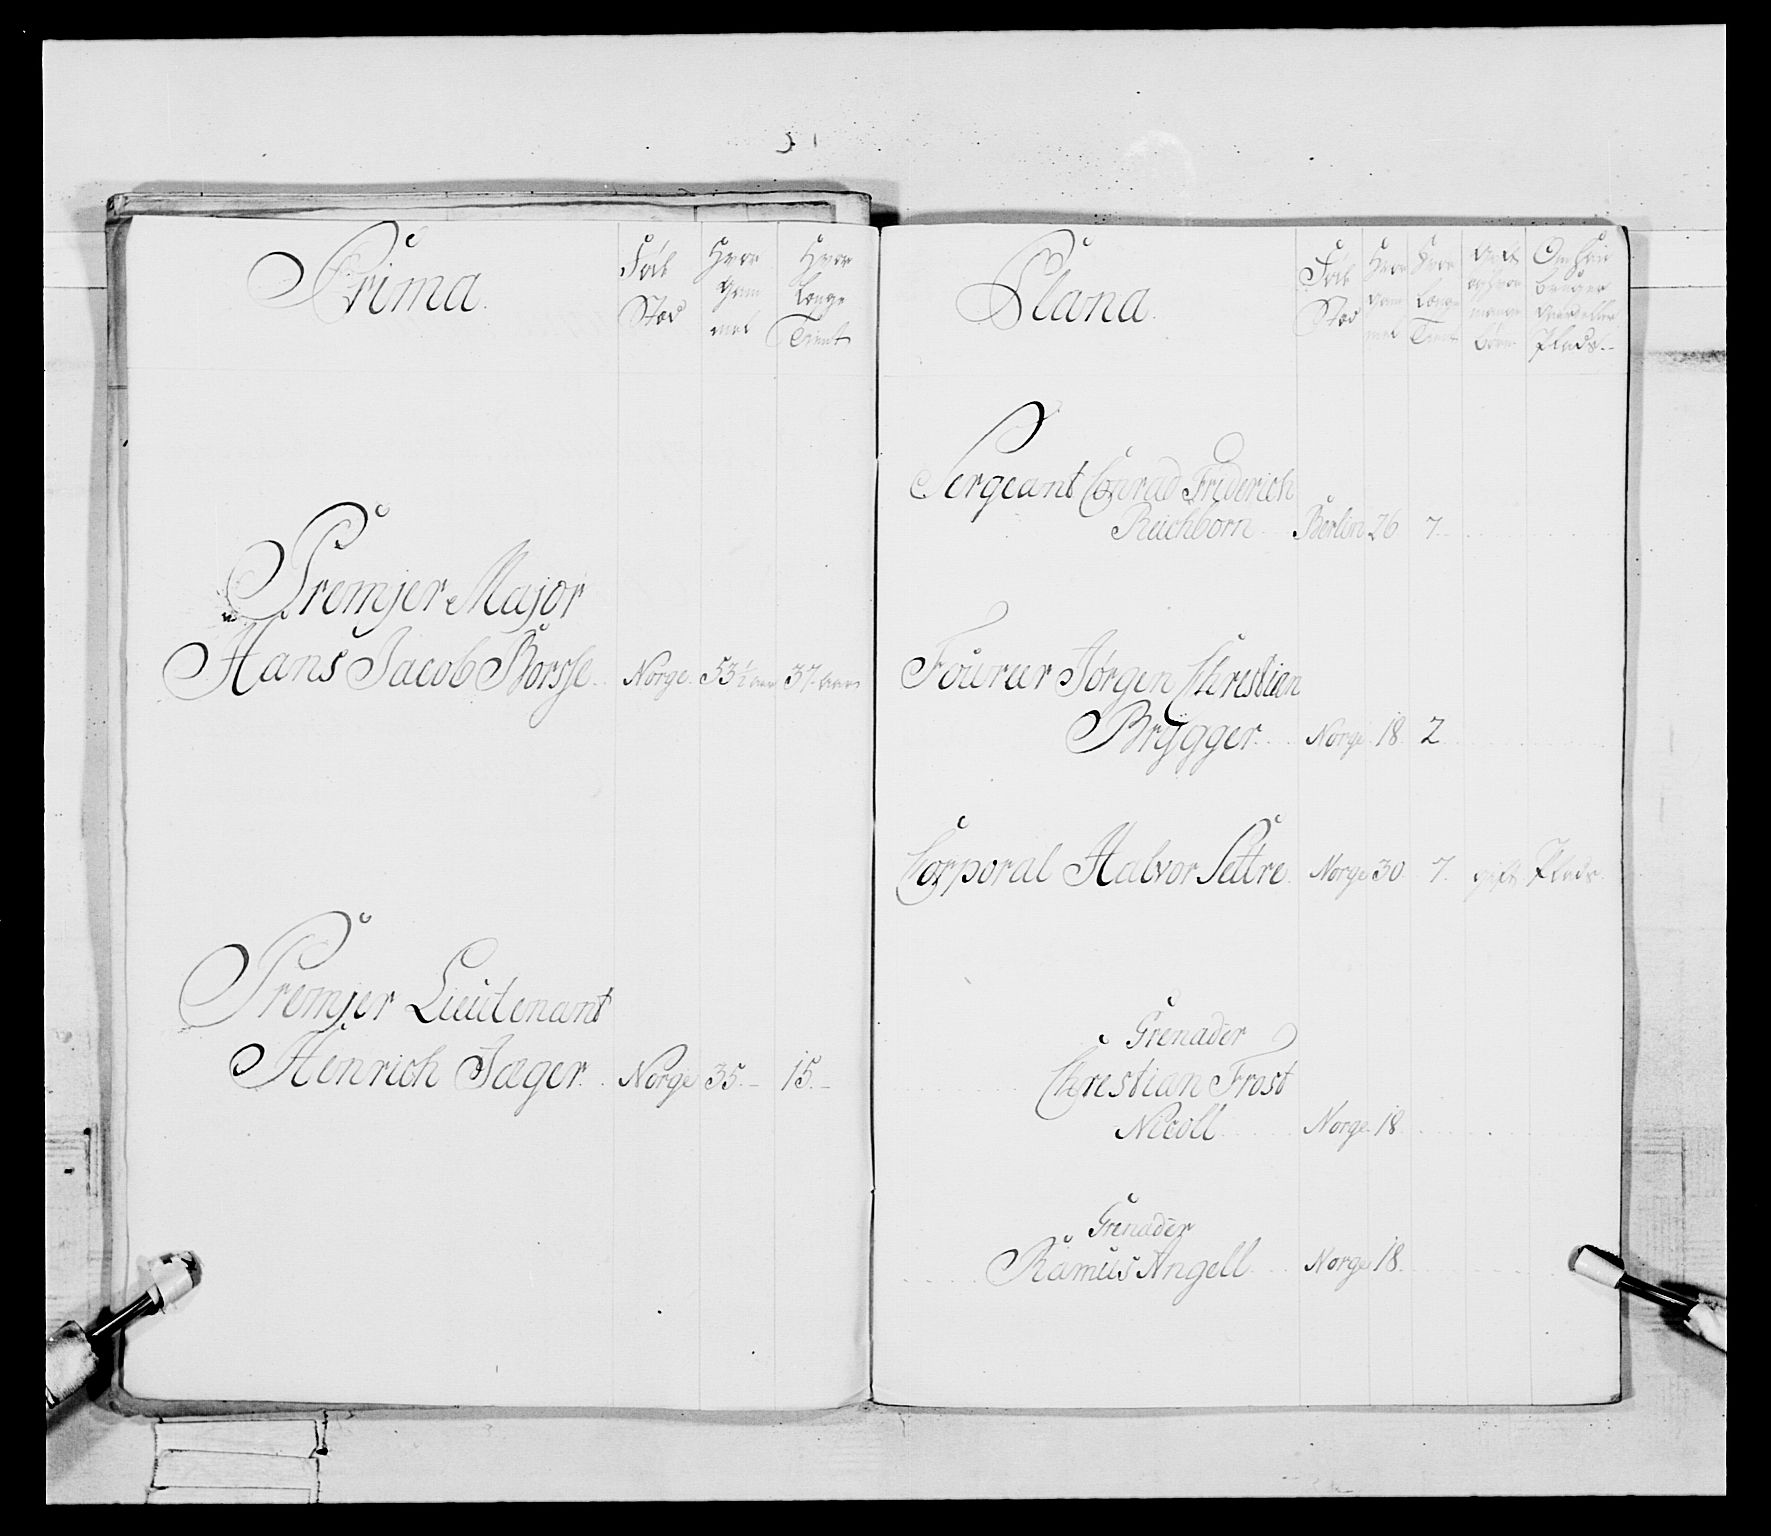 Prima.
Föd Stæd
Hvor gam mel
Hvor Længe Tient
Premjer Major
Hans Jacob Borsse. Norge. 53 1/2 aar 37 aars
Premjer Lieutenant
Henrich Jæger. Norge 35. 15.
Plana.
Föd Stæd
Hvor gam mel
Hvor Længe Tient
Gift og hvor mange börn
Om han bruger gaard eller Plads.
Sergeant Conrad Friderich
Reichborn Berlin 26 7.
Fourier Jörgen Christian
Brygger. Norge 18. 2
Corporal Halvor Settre. Norge 30. 7. gift Plads.
Grenader
Christian Frost
Nicoll Norge. 18.
Grenader
Ramus Angell. Norge 18.